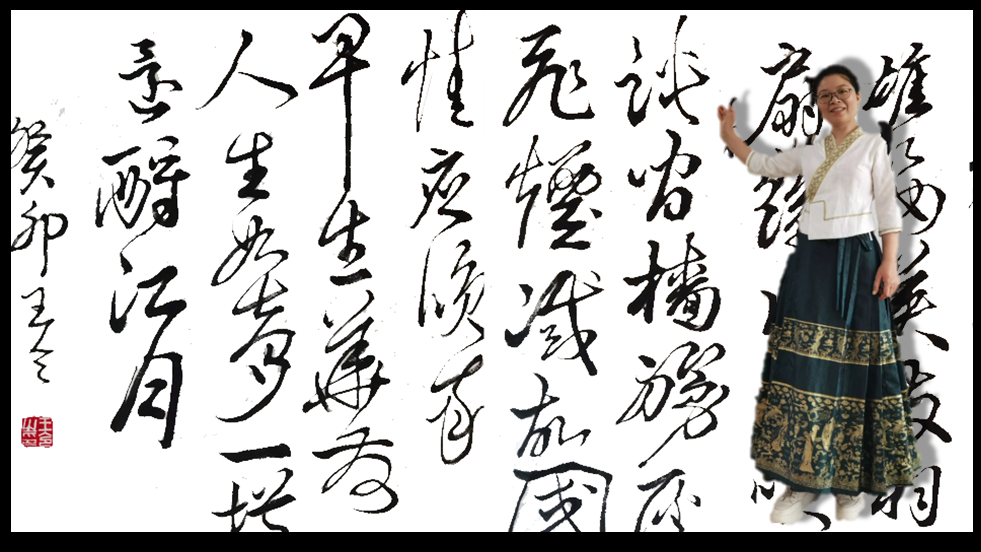 雄姿英发羽
扇纶
谈间樯橹灰
飞烟灭故国
情应我
早生华发
人生如梦一樽
还酹江月
癸卯王